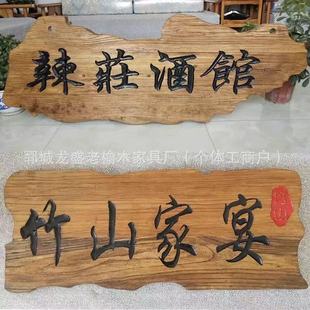 辣莊酒館
郓城龙盛老榆木家具厂（个体工商户）
竹山家宴